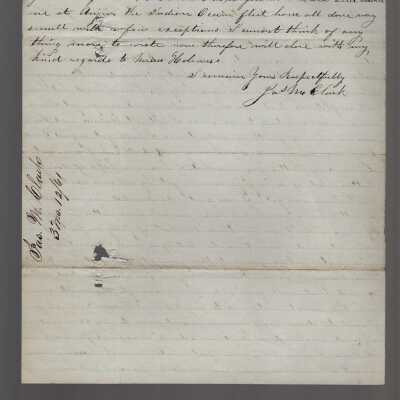 me at the Indian Ocean fleet have all done very
small with exceptions I cannot think of any
thing more to write now therefore will close with my
kind regards to Holmes
I remain Yours Respectfully
Jas M Clark
Jas. M. Clark
3 mo. 12/61